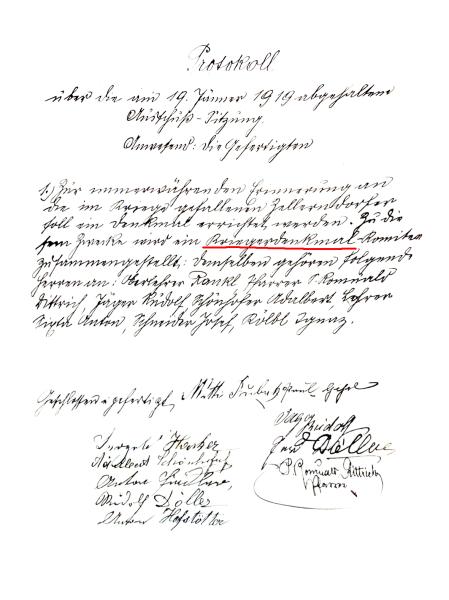 Protokoll
über die am 19. Jänner 1919 abgehaltene
Ausschuß-Sitzung.
Anwesend: die Gefertigten
1.) Zur immerwährenden Erinnerung an
die im Kriege gefallenen Zellerndorfer
soll ein Denkmal errichtet werden. Zu die
sem Zwecke wird ein Kriegerdenkmal-Komitee
zusammengestellt: demselben gehören folgende
Herren an: Oberlehrer Rankl, Pfarrer P. Romuald
Dittrich, Jäger Rudolf, Schönhofer Adalbert, Lehrer
Sixta Anton, Schneider Josef, Kölbl Ignaz.
Geschlossen u gefertigt
Jäger Rudolf
Adalbert Schönhofer
Anton
Rudolf Döller
Anton
P. Romuald Dittrich
Pfarrer